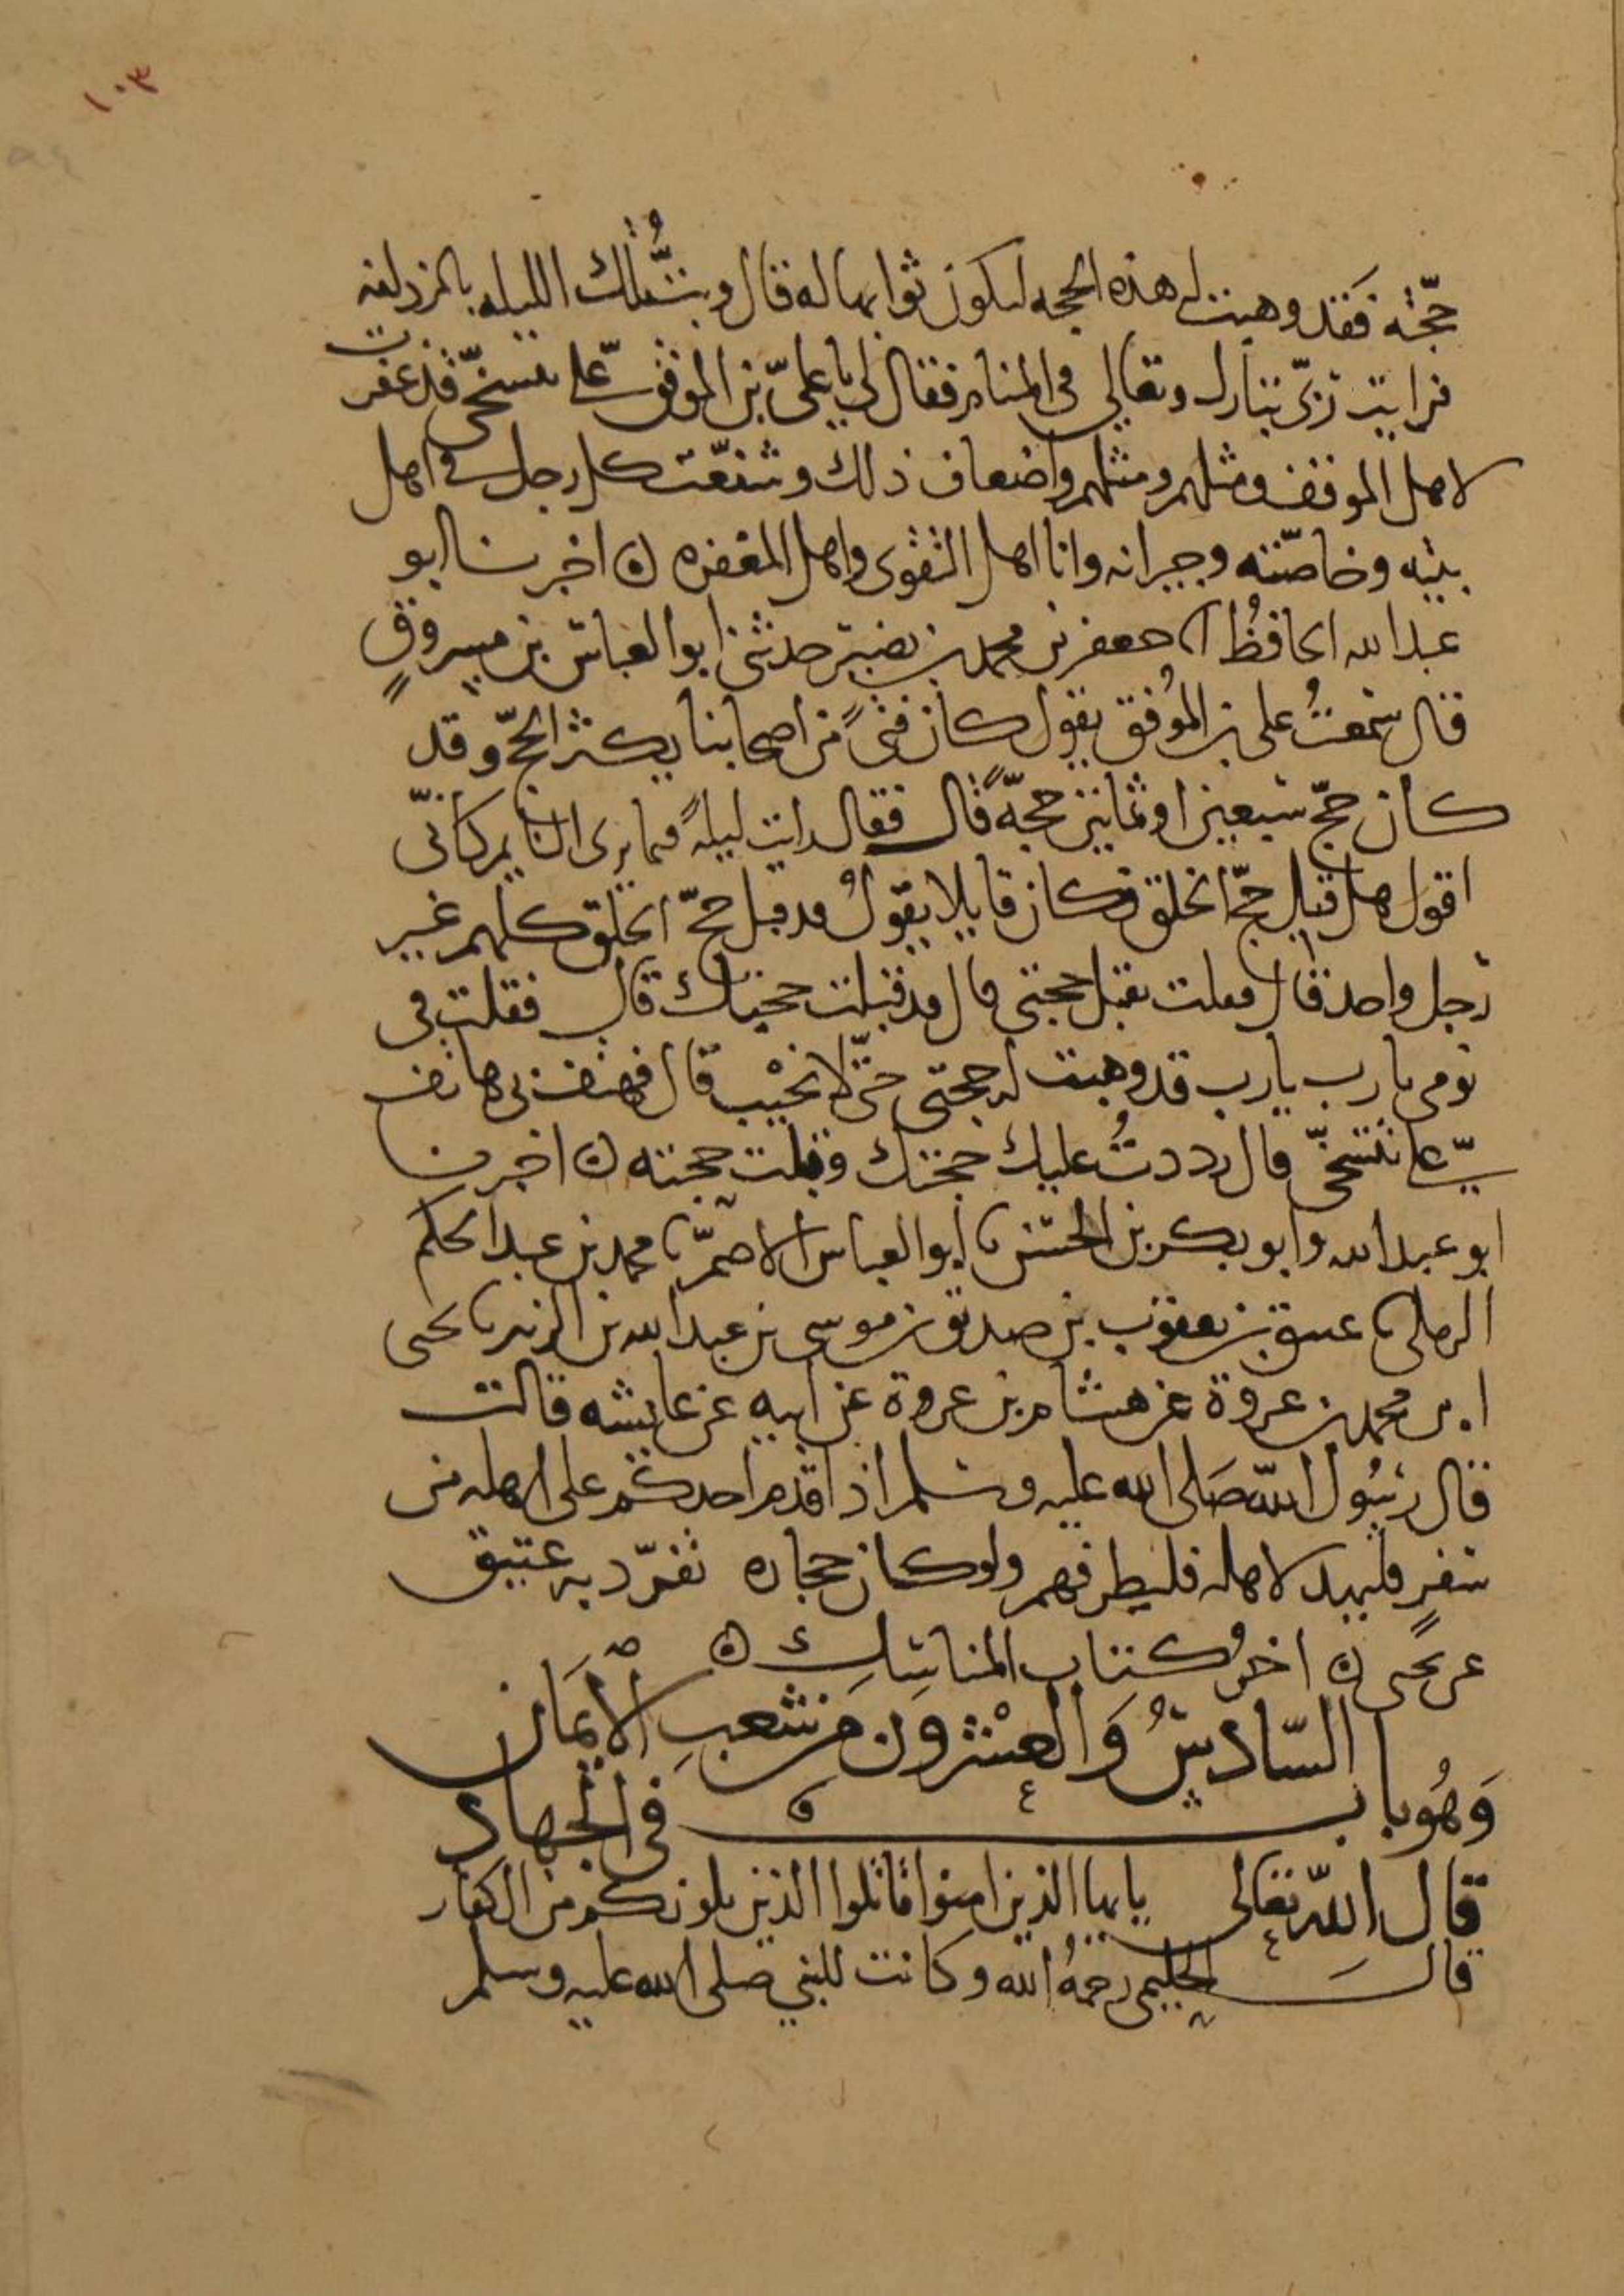 ١٠٣
حجّته فَقَد وهبت له هذه الحجه ليكون ثوابها له قال وبتُّ تلك الليله بالمزدلفه
فرايت ربّي تبارك وتعالى في المنام فقال لي يا عليّ بن الموفق عليّ تتسخّى قد غفرت
لاهل الموقف ومثلهم ومثلهم واضعاف ذلك وشفّعت كل رجل في اهل
بيته وخاصّته وجيرانه وانا اهل التقوى واهل المغفره ه اخبرنا ابو
عبد الله الحافظُ انا جعفر بن محمد بن نصير حدثني ابو العباس بن مسروقٍ
قال سمعتُ على بن المُوفق يقول كان فتىً من اصحابنا يكثر الحجّ وقد
كان حجّ سبعين او ثمانين حجّةً قال فقال رايت ليلةً فيما يرى النايم كانّي
اقول هل قبل حجّ الخلق فكان قايلا يقولُ قد قبل حجّ الخلق كلهم غير
رجل واحد قال فقلت تقبل حجتي قال قد قبلت حجتك قال فقلت في
نومي يا رب يا رب قد وهبت له حجتي حتّى لا يخيب قال فهتف بي هاتف
عليّ تتسخّى قال رددتُ عليك حجتك وقبلت حجته ه اخبرنا
ابو عبد الله وابو بكر بن الحسن نا ابو العباس الاصمّ نا محمد بن عبد الحكم
الرملي نا عتيق بن يعقوب بن صديق بن موسى بن عبد الله بن الزبير نا يحيى
ا بن محمد بن عروة عن هشام بن عروة عن ابيه عن عايشه قالت
قال رسُول اللّه صَلى الله عليه وسلم اذا قدم احدكم على اهله من
سفرٍ فليهد لاهله فليطرفهم ولو كان حجاره تفرّد به عتيق
عن يحيى ه اخرُ كتاب المناسِك ه
السّادسُ وَالعشْرون من شعبِ الْايمَان
وَهُو باب في الجهاد
قال اللّه تعالى يا يها الذين امنوا قاتلوا الذين يلونكم من الكفار
قالَ الحليمي رحمهُ الله وكانت للنبي صلى الله عليه وسلم